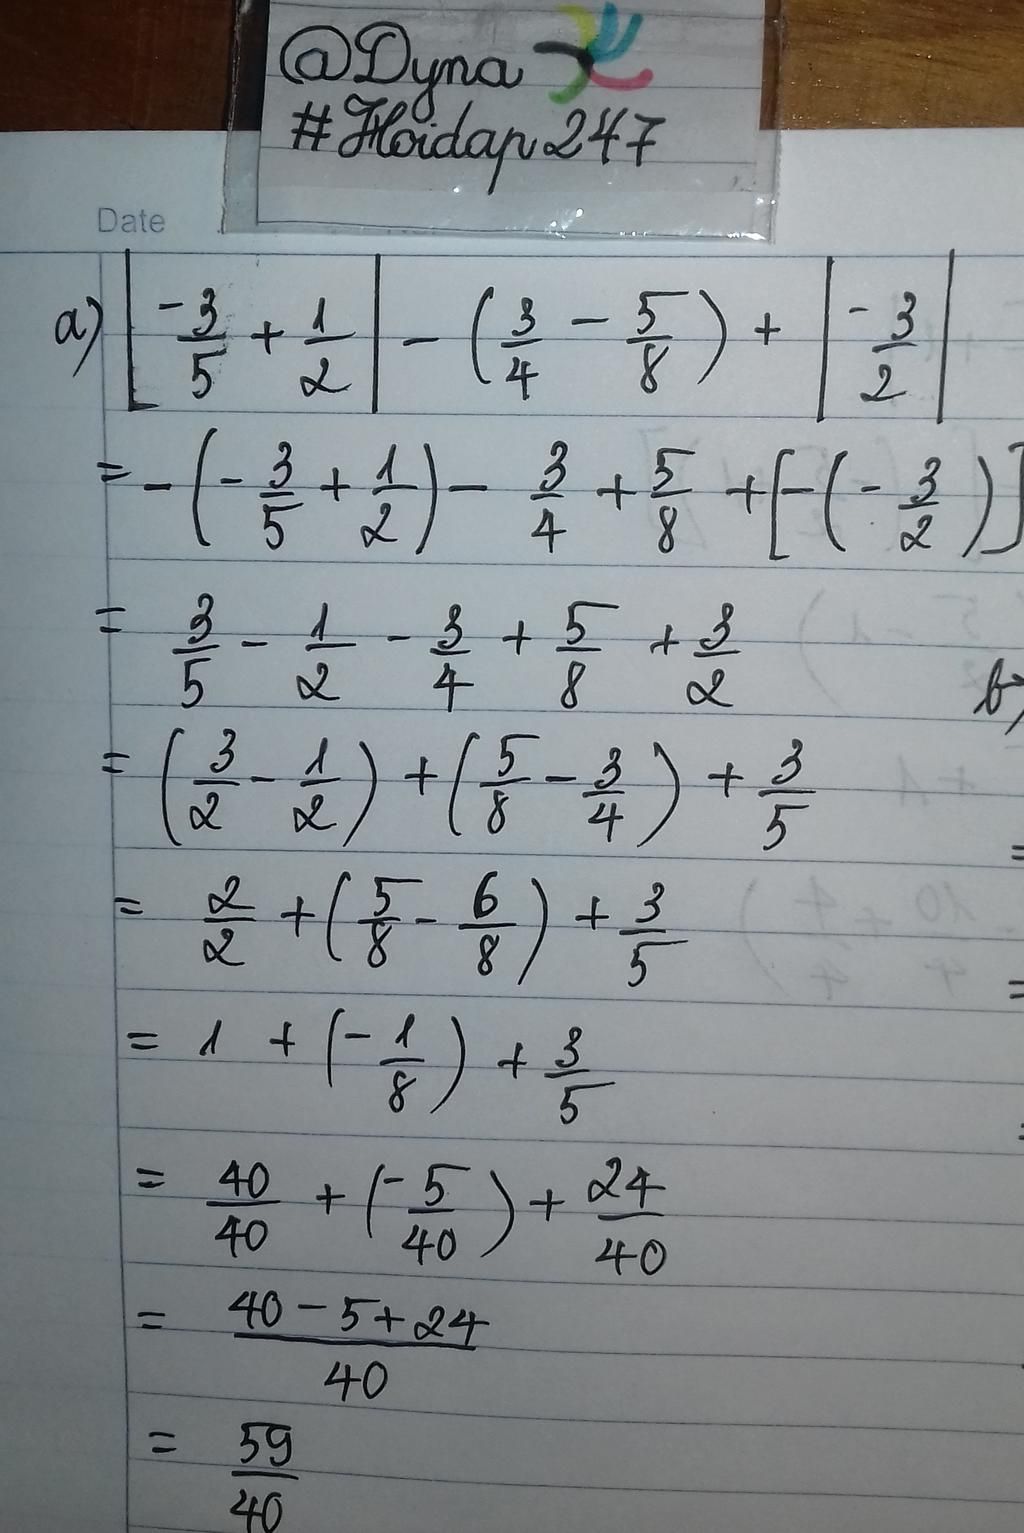 @Dyna
#Hoidap247
Date
a) |-3/5 + 1/2| - (3/4 - 5/8) + |-3/2|
= -(-3/5 + 1/2) - 3/4 + 5/8 + [-(-3/2)]
= 3/5 - 1/2 - 3/4 + 5/8 + 3/2
b)
= (3/2 - 1/2) + (5/8 - 3/4) + 3/5
= 2/2 + (5/8 - 6/8) + 3/5
= 1 + (-1/8) + 3/5
= 40/40 + (-5/40) + 24/40
= (40 - 5 + 24)/40
= 59/40